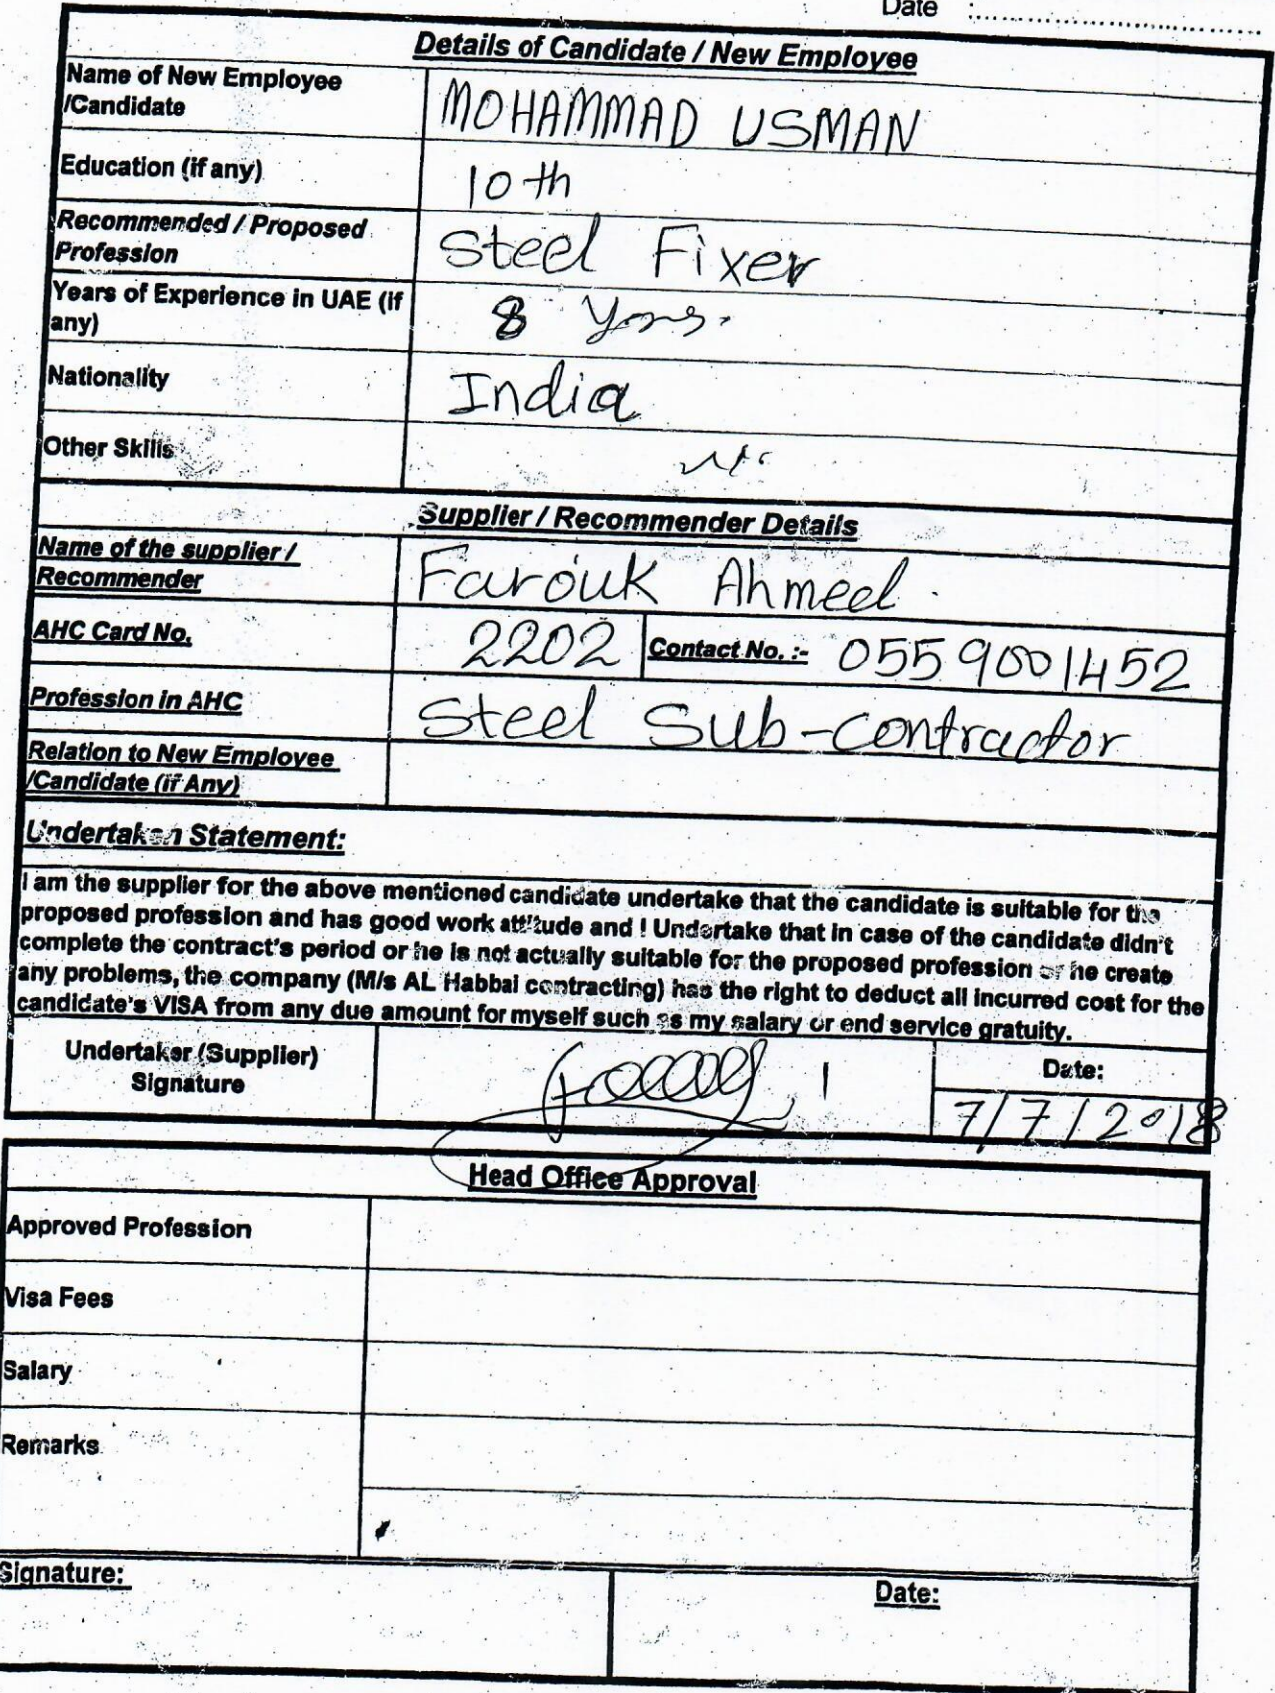 Date :..........................................
Details of Candidate / New Employee
Name of New Employee
/Candidate
MOHAMMAD USMAN
Education (if any)
10th
Recommended / Proposed
Profession
Steel Fixer
Years of Experience in UAE (if
any)
8 Years.
Nationality
India
Other Skills
Supplier / Recommender Details
Name of the supplier /
Recommender
Farouk Ahmed.
AHC Card No.
2202
Contact No. :-
0559001452
Profession in AHC
Steel Sub-contractor
Relation to New Employee
/Candidate (if Any)
Undertaken Statement:
I am the supplier for the above mentioned candidate undertake that the candidate is suitable for the
proposed profession and has good work attitude and I Undertake that in case of the candidate didn't
complete the contract's period or he is not actually suitable for the proposed profession or he create
any problems, the company (M/s AL Habbai contracting) has the right to deduct all incurred cost for the
candidate's VISA from any due amount for myself such as my salary or end service gratuity.
Undertaker (Supplier)
Signature
Date:
7/7/2018
Head Office Approval
Approved Profession
Visa Fees
Salary
Remarks
Signature:
Date: